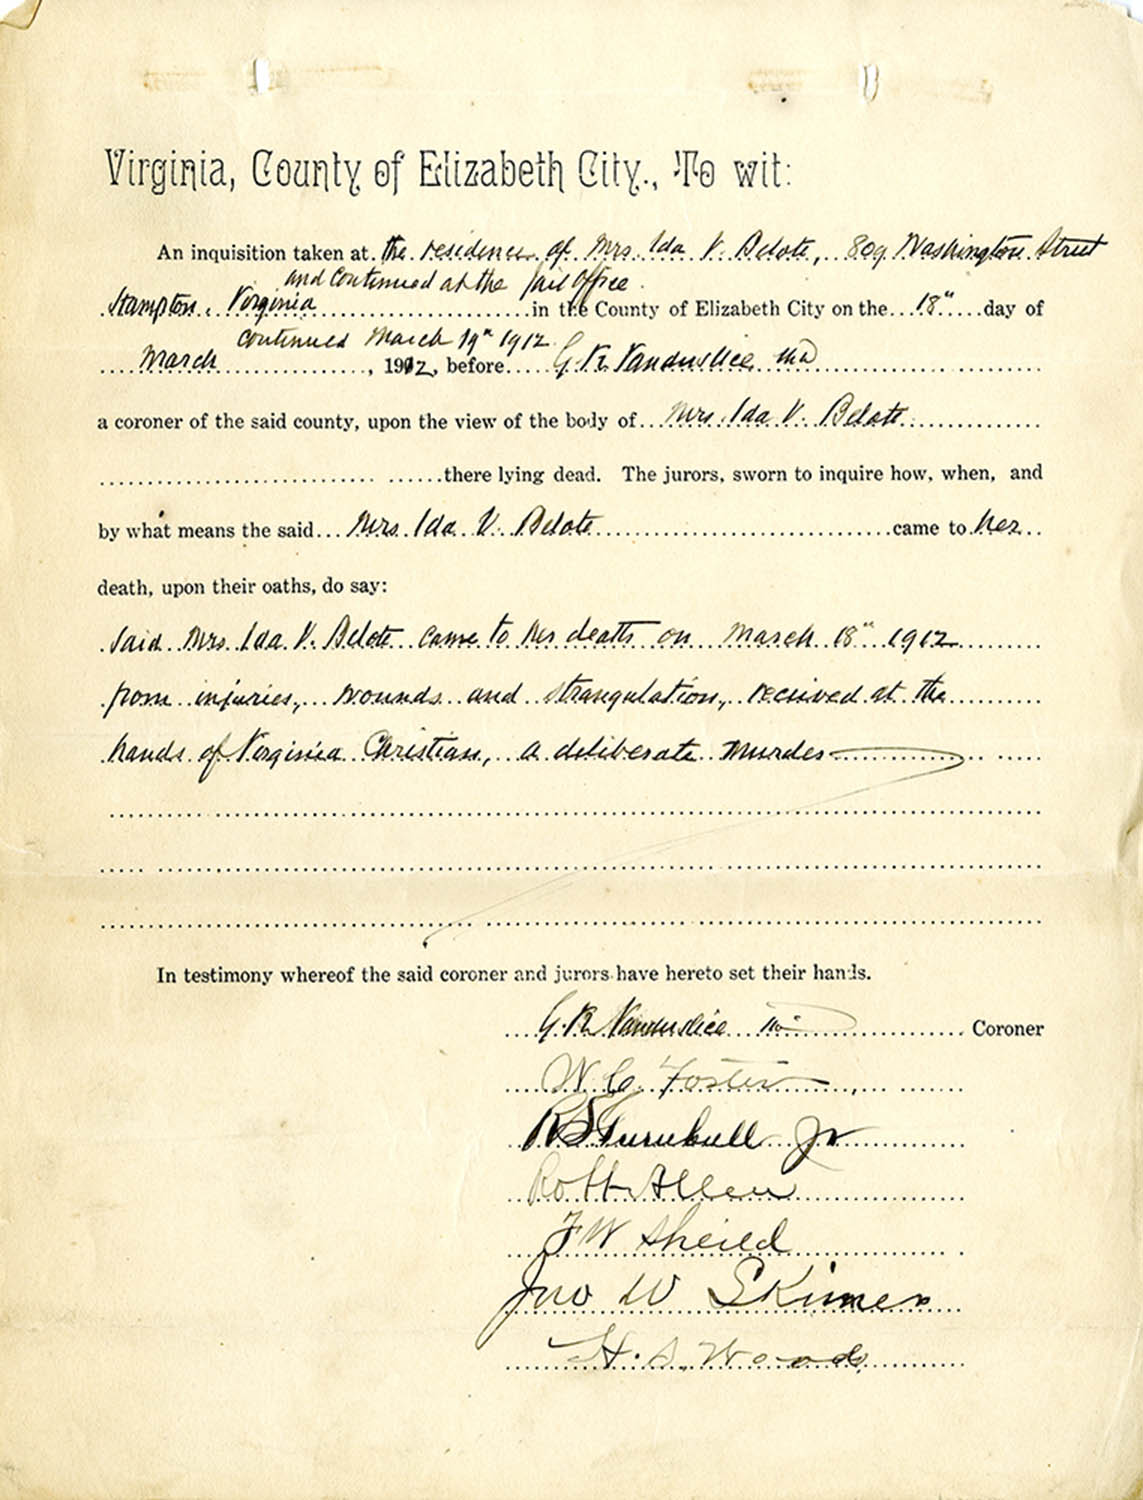 Virginia, County of Elizabeth City., To wit:
An inquisition taken at the residence of Mrs. Ida V. Belote, 809 Washington Street
and continued at the Jail Office
Hampton, Virginia in the County of Elizabeth City on the 18" day of
continued March 19" 1912
March, 1912, before G. K. Vanderslice MD
a coroner of the said county, upon the view of the body of Mrs. Ida V. Belote
there lying dead. The jurors, sworn to inquire how, when, and
by what means the said Mrs. Ida V. Belote came to her
death, upon their oaths, do say:
Said Mrs. Ida V. Belote came to her death on March 18" 1912
from injuries, wounds and strangulation, received at the
hands of Virginia Christian, a deliberate murder
In testimony whereof the said coroner and jurors have hereto set their hands.
G. K. Vanderslice Coroner
W. C. Foster
R S Turnbull Jr
Robt Allen
F W Sheild
Jno W Skinner
H. S. Woods